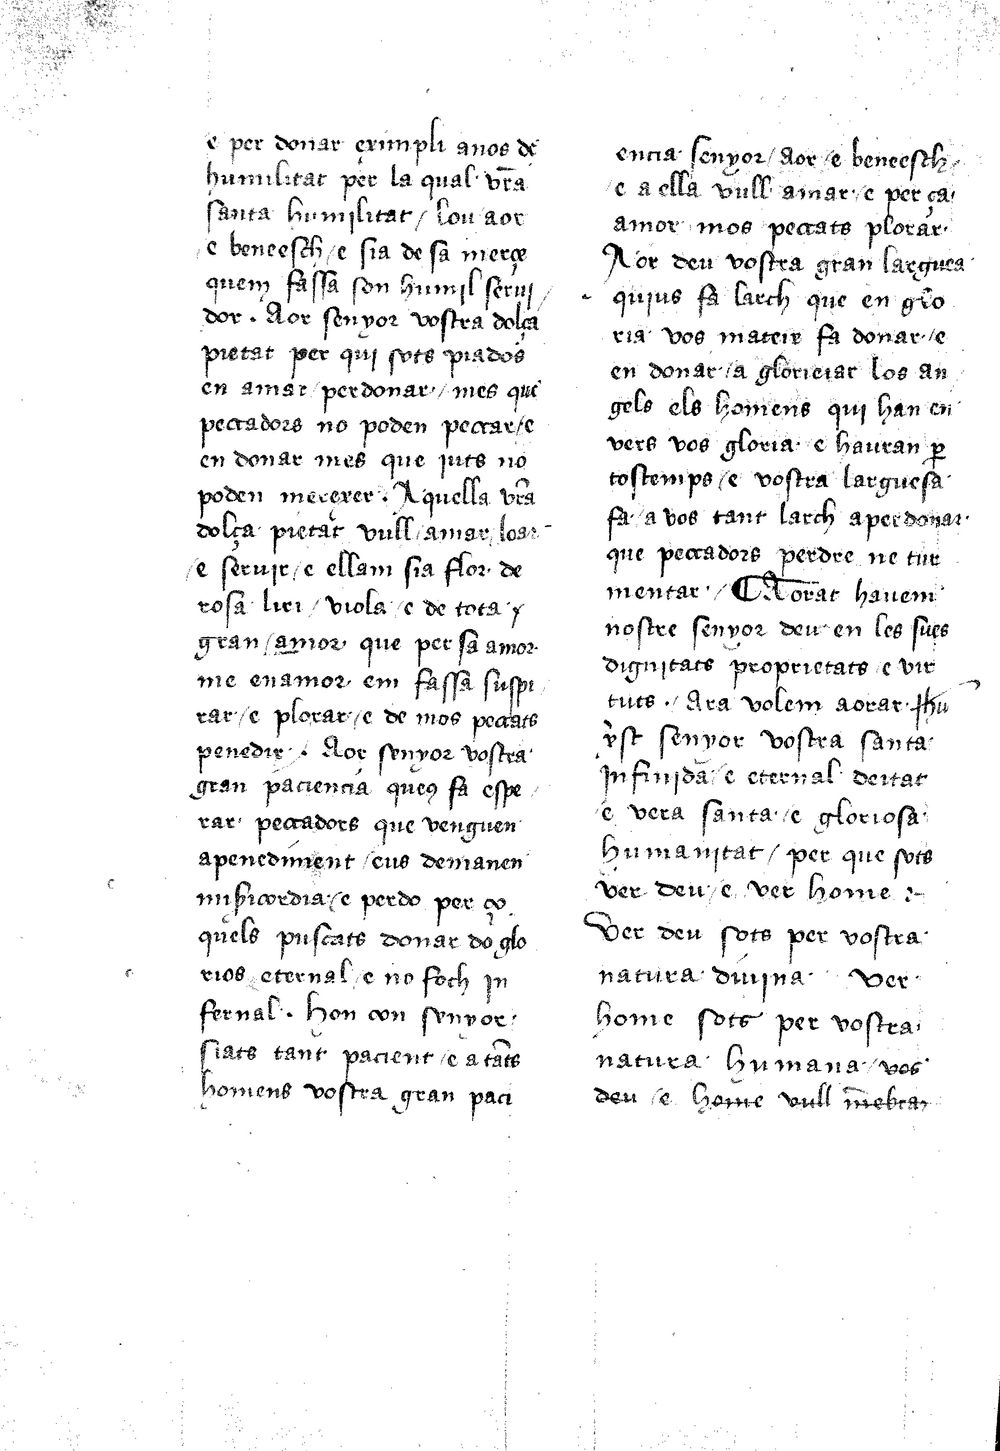 e per donar eximpli anos de
humilitat per la qual vr̃a
santa humilitat / lou aor
e beneesch / e sia de sa merçe
quem fassa son humil serui /
dor . Aor senyor vostra dolça
pietat per qui sots piados
en amar / perdonar / mes que
peccadors no poden peccar / e
en donar mes que iuts no
poden merexer . Aquella vr̃a
dolça pietat vull / amar / loar
/ e seruir / e ellam sia flor de
rosa liri / viola / e de tota
gran / amor que per sa amor
me enamor em fassa suspi
rar / e plorar / e de mos peccats
penedir . Aor senyor vostra
gran paciencia queus fa espe /
rar peccadors que venguen
apenediment / eus demanen
misicordia / e perdo per ço
quels puscats donar do glo
rios eternal / e no foch in
fernal . Hon con senyor
siats tant pacient / e a tãts
homens vostra gran paci
encia senyor / aor / e beneesch /
/ e a ella vull amar / e per ça
amor mos peccats plorar
Aor deu vostra gran larguea
quius fa larch que en glo
ria vos mateix fa donar / e
en donar / a glorieiar los an
gels els homens qui han en
vers vos gloria e hauran ꝑ
tostemps / e vostra larguesa
fa / a vos tant larch aperdonar
que peccadors perdre ne tur
mentar / Aorat hauem
nostre senyor deu en les sues
dignitats proprietats / e vir
tuts . / Ara volem aorar jhu
xp̃st senyor vostra santa
infinida / e eternal deitat
e vera santa / e gloriosa
humanitat / per que sots
ver deu / e ver home
Ver deu sots per vostra
natura diuina ver
home sots per vostra
natura humana / vos
deu / e home vull m̃ebrar